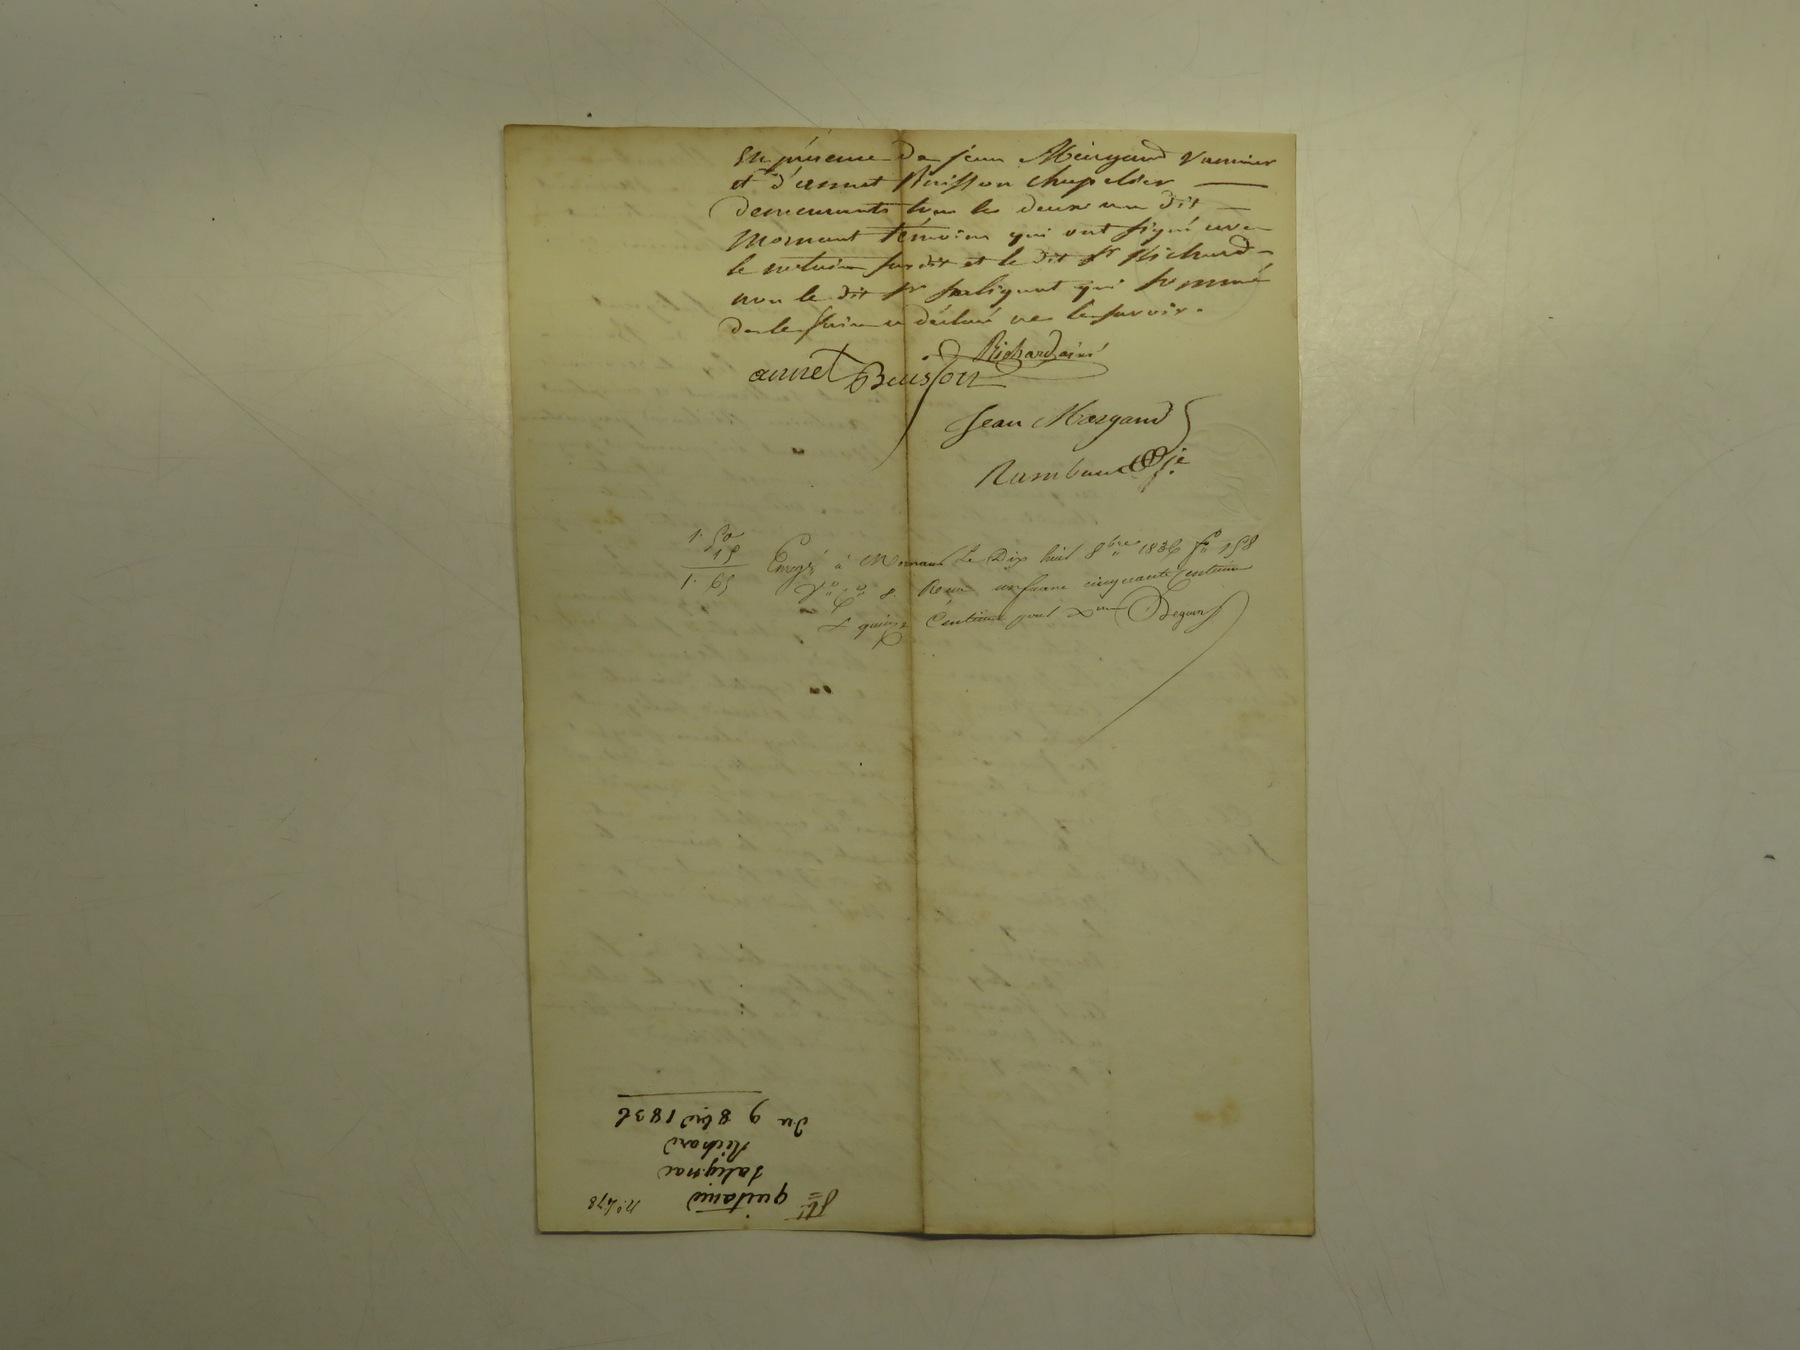 En présence de jean Margand vannier
et d'annet Buisson chapelier
demeurants tous les deux au dit
Mornant témoins qui ont signé avec
le notaire susdit et le dit Sr Richard
non le dit Sr Salignat qui sommé
de le faire a déclaré ne le savoir.
Richard ainé
annet Buisson
Jean Margand
Rambaud
1. 50
15
1. 65
Enregé à Mornant Le Dix huit 8bre 1836 fo 158
Vo Co 8. Reçu un franc cinquante Centimes
& quinze Centimes pour Dme Deguin
du 9 8bre 1836
Richard
Salignac
quitance
no. 478